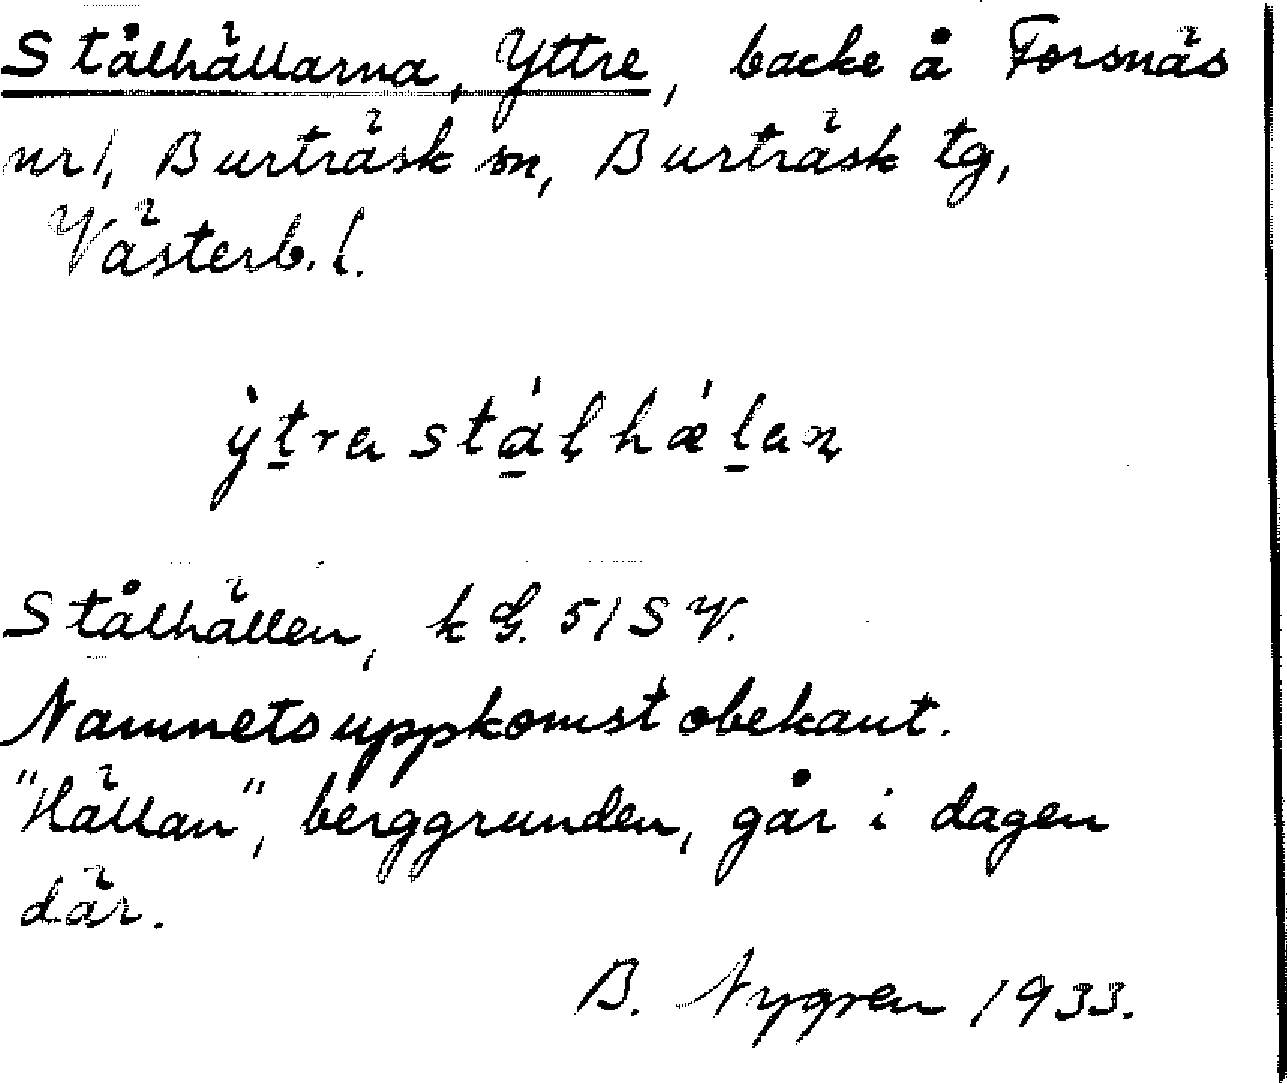 Stålhällarna, Yttre, backe å Forsnäs
nr 1, Burträsk sn, Burträsk tg,
Västerb. l.
ỳt̲ra stá̲l̨hǽl̲aṇ
Stålhällen, k G. 51 S V.
Namnets uppkomst obekant.
"Hällan", berggrunden, går i dagen
där.
B. Nygren 1933.